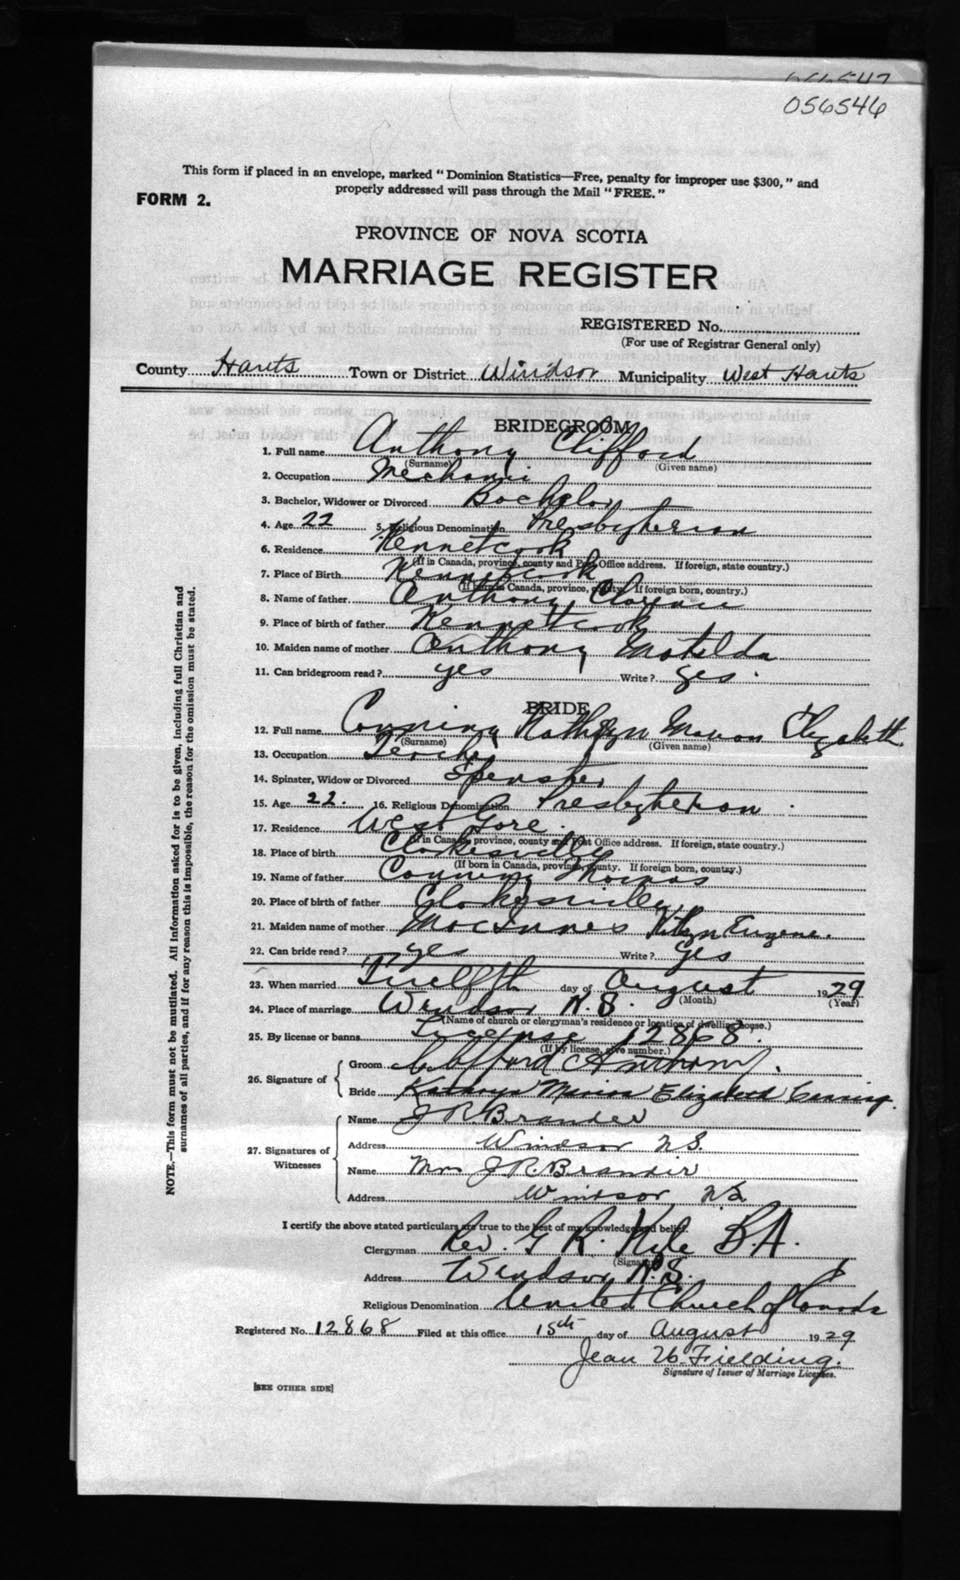 056547
056546
This form if placed in an envelope, marked "Dominion Statistics—Free, penalty for improper use $300," and
properly addressed will pass through the Mail "FREE."
FORM 2.
PROVINCE OF NOVA SCOTIA
MARRIAGE REGISTER
REGISTERED No.
(For use of Registrar General only)
County Hants Town or District Windsor Municipality West Hants
BRIDEGROOM
1. Full name Anthony Clifford
(Surname) (Given name)
2. Occupation Mechanic
3. Bachelor, Widower or Divorced Bachelor
4. Age 22 5. Religious Denomination Presbyterian
6. Residence Kennetcook
(If in Canada, province, county and Post Office address. If foreign, state country.)
7. Place of Birth Kennetcook
(If born in Canada, province, county. If foreign born, country.)
8. Name of father Anthony Clarence
9. Place of birth of father Kennetcook
10. Maiden name of mother Anthony Matilda
11. Can bridegroom read? yes Write? yes.
BRIDE
12. Full name Conning Kathryn Marion Elizabeth
(Surname) (Given name)
13. Occupation Teacher
14. Spinster, Widow or Divorced Spinster
15. Age 22. 16. Religious Denomination Presbyterian.
17. Residence West Gore.
(If in Canada, province, county and Post Office address. If foreign, state country.)
18. Place of birth Clarkesville
(If born in Canada, province, county. If foreign born, country.)
19. Name of father Conning Thomas
20. Place of birth of father Clarkesville
21. Maiden name of mother MacInnes Eugene.
22. Can bride read? yes Write? yes
23. When married Twelfth day of August 1929
(Month) (Year)
24. Place of marriage Windsor N.S.
(Name of church or clergyman's residence or location of dwelling house.)
25. By license or banns License 12868.
(If by license, give number.)
26. Signature of
Groom Clifford Anthony.
Bride Kathryn Marion Elizabeth Conning.
27. Signatures of Witnesses
Name J R. Brander
Address Windsor N.S.
Name Mrs J R. Brander
Address Windsor N.S.
I certify the above stated particulars are true to the best of my knowledge and belief.
Clergyman Rev. G R. Kile B.A.
(Signature)
Address Windsor N.S.
Religious Denomination United Church of Canada
Registered No. 12868 Filed at this office 15th day of August 1929
Jean W. Fielding.
Signature of Issuer of Marriage Licenses.
[SEE OTHER SIDE]
NOTE.—This form must not be mutilated. All information asked for is to be given, including full Christian and
surnames of all parties, and if for any reason this is impossible, the reason for the omission must be stated.